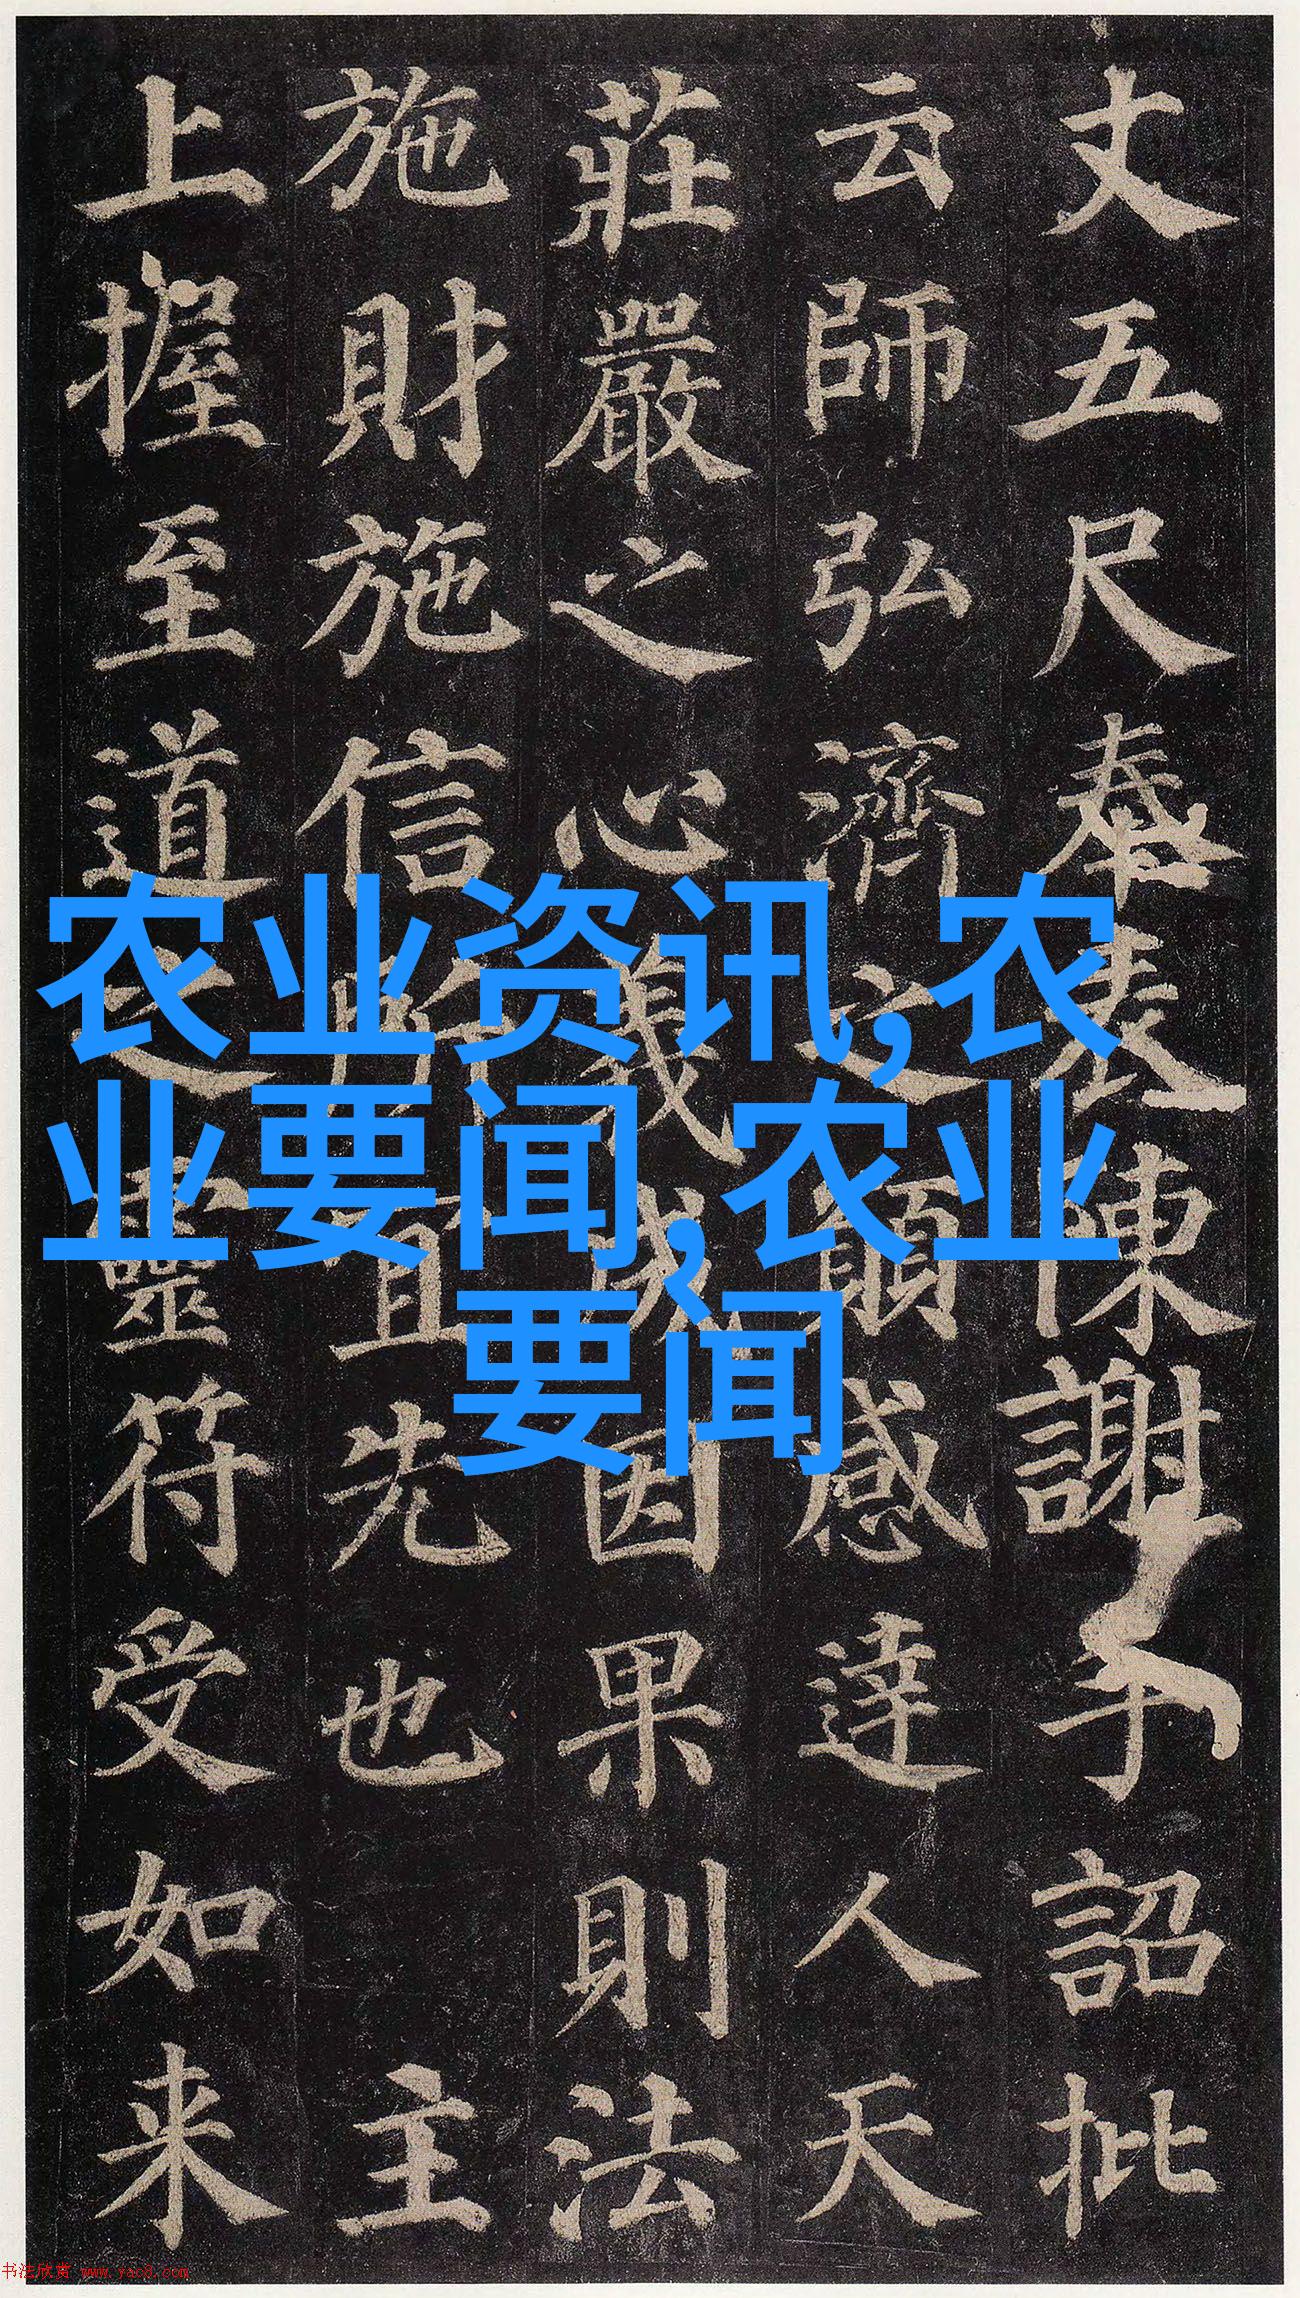 丈五尺奉表陳謝手詔批
云師弘濟之願感達人天
莊嚴之心義成因果則法
施財施信所宜先也 主
上握至道之靈符受如来
农业资讯,农
业要闻,农业
要闻
书法欣赏 www.yac8.com